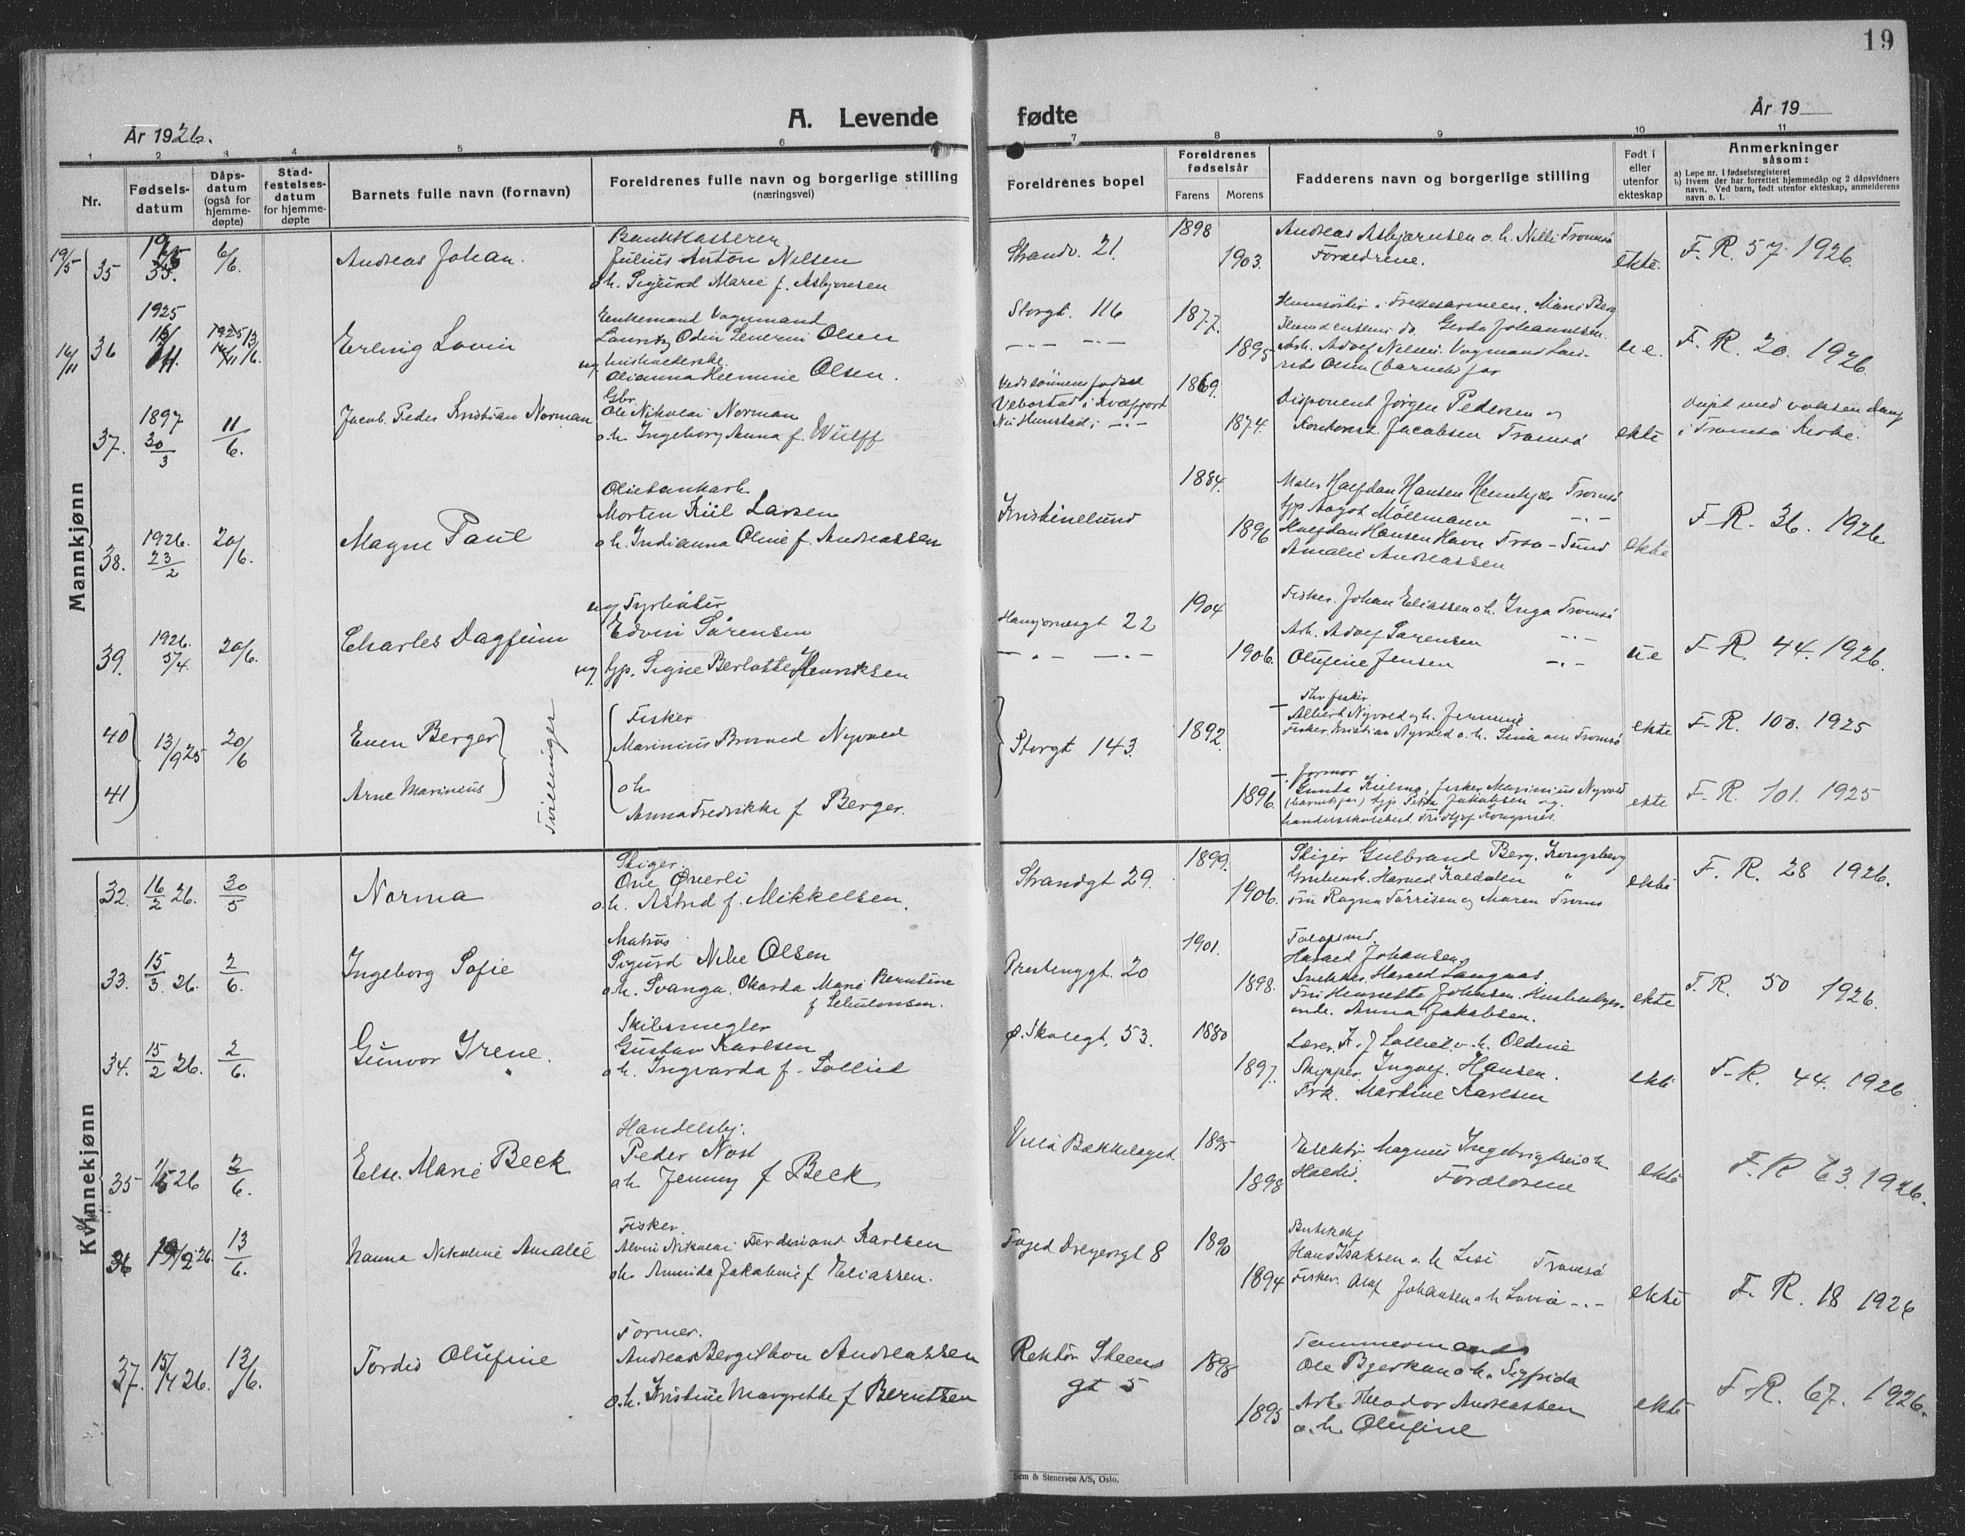 19
A. Levende fødte
År 1926.
År 19
1 2 3 4 5 6 7 8 9 10 11
Nr.
Fødsels-
datum
Dåps-
datum
(også for
hjemme-
døpte)
Stad-
festelses-
datum
for hjemme-
døpte
Barnets fulle navn (fornavn)
Foreldrenes fulle navn og borgerlige stilling
(næringsvei)
Foreldrenes bopel
Foreldrenes
fødselsår
Farens Morens
Fadderens navn og borgerlige stilling
Født i
eller
utenfor
ekteskap
Anmerkninger
såsom:
a) Løpe nr. i fødselsregisteret
b) Hvem der har forrettet hjemmedåp og 2 dåpsvidners
navn. Ved barn, født utenfor ekteskap, anmelderens
navn o. l.
Mankjønn
19/5 35 6/6. Andreas Johan.
Bankkasserer
Julius Anton Nilsen
o.h. Sigurd Marie f. Asbjørnsen
Strandv. 21. 1898 1903.
Andreas Asbjørnsen o.h. Nilli Tromsø
Foreldrene.
ekte. F. R. 57. 1926.
16/11 36 1925 Erling Lovin
Enkemand Vognmand
Lauritz Odin Severin Olsen
og
Olianna Hermine Olsen.
Storgt. 116 1877. 1895
Arb. Adolf Nilsen. Vogmand Lau-
rits Olsen (barnets) far
u.e. F. R. 20. 1926.
37. 1897 30/3 11/6. Jacob Peder Kristian Norman
Gbr.
Ole Nikolai Norman
o.h. Ingeborg Anna f. Wulff
Ved sønnens fødsel
Vebostad i Kvæfjord
1869. 1874.
Disponent Jørgen Pedersen og
Jacobsen Tromsø
ekte
døpt med voksen daap
i Tromsø Kirke.
38. 1926. 23/2 20/6. Magne Paul
Morten Kiil Larsen
o.h. Indianna Oline f. Andreassen
Kristinelund 1884. 1896
Maler Halfdan Hansen Tromsø
Aagot Möllmann
Halfdan Hansen Havn Trsø-Sund
Amalie Andreassen
ekte F. R. 36. 1926
39. 1926. 5/4. 20/6. Charles Dagfinn
ug Fyrbøter
Edvin Sørensen
ug. Signe Berlotte Henriksen
22 1904 1906.
Fisker. Johan Eliassen o.h. Inga Tromsø
Arb. Adolf Sørensen
Olufine Jensen
ue F. R. 44. 1926.
40 13/9 25 20/6 Even Berger
41 Arne Marinius
Tvillinger
Fisker
Marinius Nyvold
o.h.
Anna Fredrikke f. Berger.
Storgt 143. 1892. 1896.
fisker
Albert Nyvold o.h. Jermine
Fisker Kristian Nyvold o.h. Lina Tromsø
ekte F. R. 100. 1925
farmor
fisker Marinius Nyvold
(barnets far) Jakobsen og
ekte F. R. 101. 1925
Kvinnekjønn
32. 16/2 26. 30/5 Norma
Stiger.
Ove Øverli
o.h. Astrid f. Mikkelsen.
Strandgt 29. 1899. 1906.
Stiger Gulbrand Berg. Kongsberg
Grubearb. Harald Kaldalen "
Frü Ragna Tørrisen og Maren Tromsø
ekte F. R. 28 1926.
33. 15/3. 26. 2/6. Ingeborg Sofie
Matros
Sigurd Olsen
o.h. Svanga. Okarda Marie Berntine
Prestenggt. 20 1901. 1898.
Harald Johansen,
Snekker Harald Langnas,
Fru Henrette Johansen.
Anna Jakobsen.
ekte F. R. 50 1926.
34. 15/2 26. 2/6. Gunvor Irene.
Skibsmegler
Gustav Karlsen
o.h. Ingvarda f. Sollied
Ø. Skolegt. 53. 1880 1897.
Lærer. K. J Sollied. o.h. Oldine
Skipper. Ingolf. Hansen.
Frk. Martine Karlsen
ekte F. R. 44. 1926
35 26 2/6. Else. Marie Beck
Handelsbj.
Peder Nost
o.h. Jenny f Beck
Villa Bekkelaget 1895 1898
Elektr. Magnus Ingebrigtsen o.h
Foreldrene
ekte F. R 63. 1926.
36 19/2 26. 13/6. Nanna Nikoline Amalie
Fisker.
Alvin Nikolai Ferdinand Karlsen
o.h. Annida Jakobine f Eliassen.
Foged Dreyersgt 8 1890 1894
Hans Isaksen o.h Lisi Tromsø
Fisker. Olaf Johansen o.h Lovise -.-
ekte F. R. 18 1926
37. 15/4 26. 13/6. Tordis Olufine
Former.
Andreas Bergithon Andreassen
o.h. Kristine Margrethe f Berntsen
Rektor Steens
gt 5 1898 1895
Tømmermand
Ole Bjerkan o.h. Sigfrida
Arb. Theodor Andreassen
o.h. Olufine
ekte F. R. 67. 1926.
Sem & Stenersen A/S, Oslo.